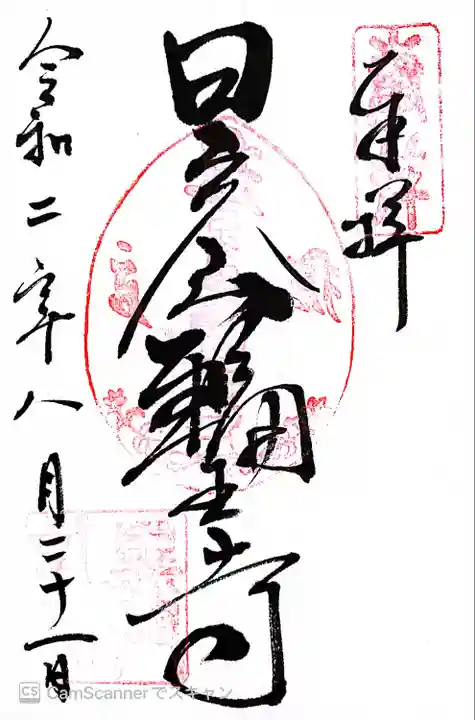 奉拝
日光山輪王寺
令和二年八月二十一日
CS CamScanner でスキャン